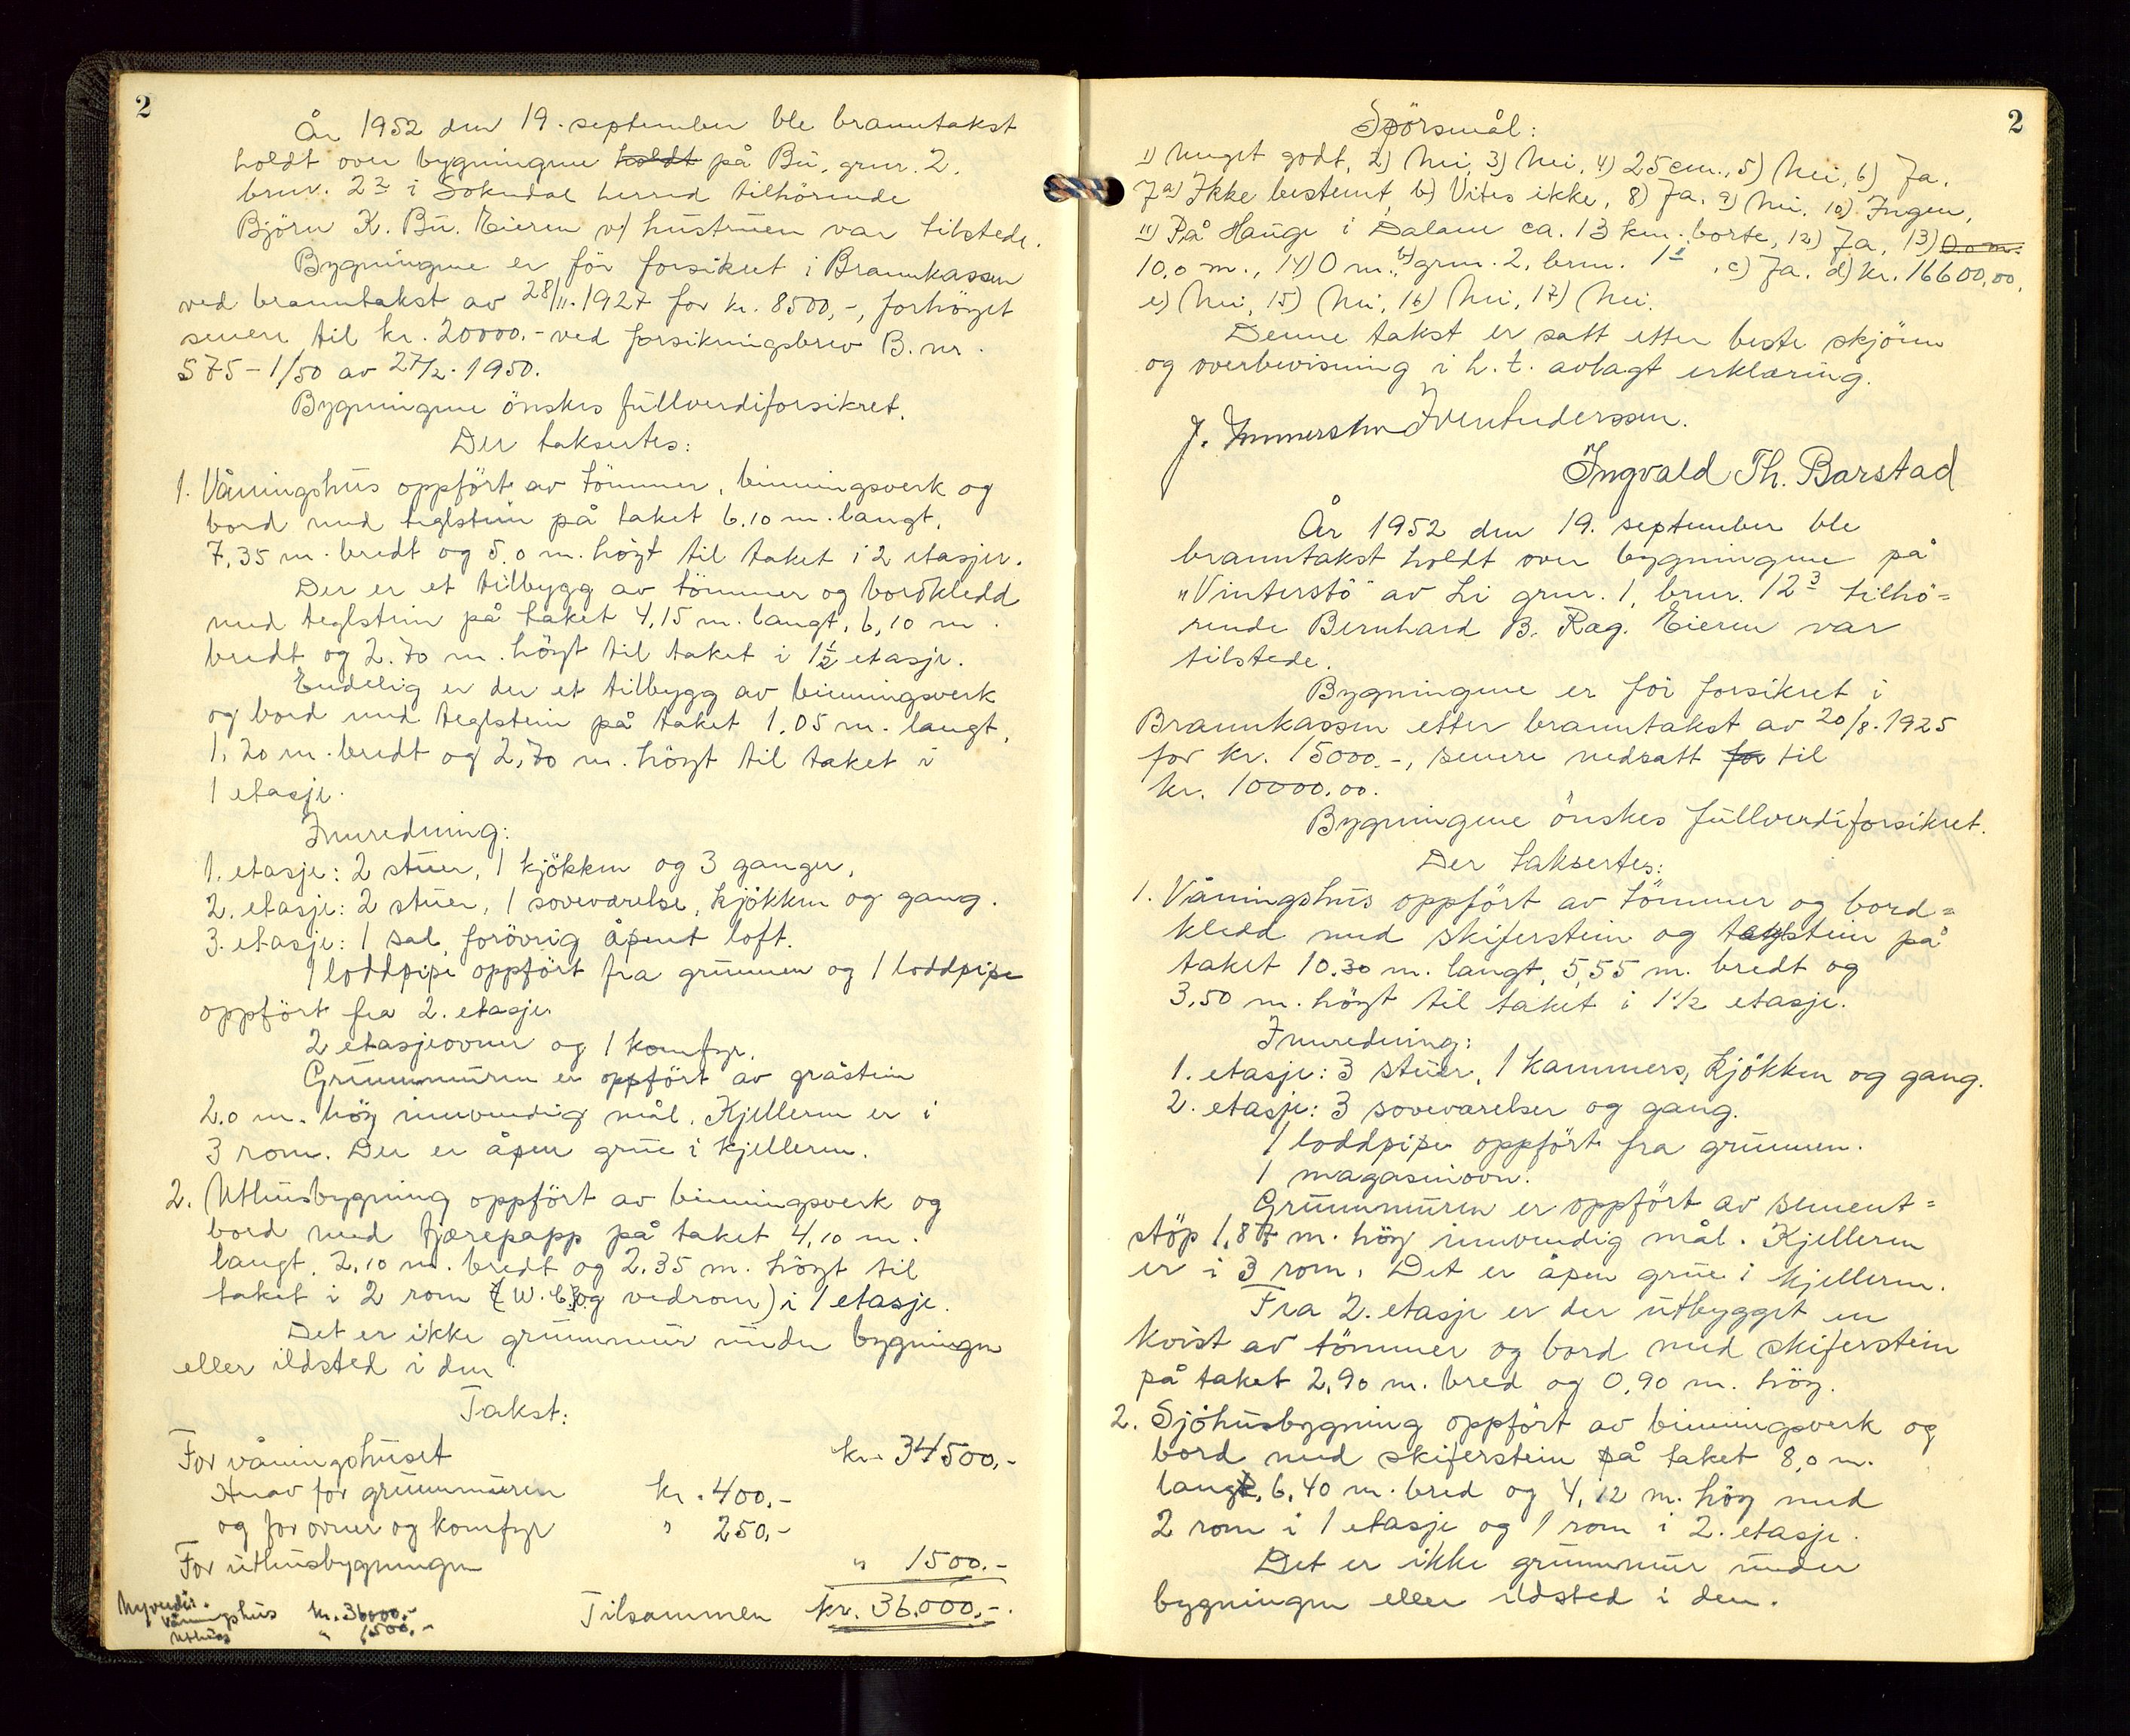 2
År 1952 den 19. september ble branntakst
holdt over bygningene holdt på Bu, gnr. 2.
bnr. 2² i Sokndal herred tilhörende
Björn K. Bu. Eieren v/ hustruen var tilstede.
Bygningene er för forsikret i Brannkassen
ved branntakst av 28/11. 1927 for kr. 8500,-, forhöyet
senere til kr. 20000.- ved forsikringsbrev B. nr.
575 - 1/50 av 27/2. 1950.
Bygningene önskes fullverdiforsikret.
Der taksertes:
1. Våningshus oppfört av tömmer, binningsverk og
bord med teglstein på taket 6.10 m. langt,
7,35 m. bredt og 5,0 m. höyt til taket i 2 etasjer.
Der er et tilbygg av tömmer og bordkledd
med teglstein på taket 4,15 m. langt, 6,10 m.
bredt og 2.70 m. höyt til taket i 1½ etasje.
Endelig er der et tilbygg av binningsverk
og bord med teglstein på taket 1.05 m. langt,
1,20 m. bredt og 2,70 m. höyt til taket i
1 etasje.
Innredning:
1. etasje: 2 stuer, 1 kjökken og 3 ganger,
2. etasje: 2 stuer, 1 soveværelse, kjökken og gang.
3. etasje: 1 sal, forövrig åpent loft.
1 loddpipe oppfört fra grunnen og 1 loddpipe
oppfört fra 2. etasje.
2 etasjeovner og 1 komfyr.
Grunnmuren er oppfört av gråstein
2.0 m. höy innvendig mål. Kjelleren er i
3 rom. Der er åpen grue i kjelleren.
2. Uthusbygning oppfört av binningsverk og
bord med tjærepapp på taket 4,10 m.
langt, 2,10 m. bredt og 2,35 m. höyt til
taket i 2 rom (W.C. og vedrom) i 1 etasje.
Det er ikke grunnmur under bygningen
eller ildsted i den
Takst:
For våningshuset kr. 34500,-
Herav for grunnmuren kr. 400,-
og for ovner og komfyr " 250,-
For uthusbygningen " 1500.-
Tilsammen kr. 36.000,-.
Nyverdi:
Våningshus kr. 36000,-
Uthus " 1500,-
2
Spörsmål:
1) Meget godt, 2) Nei, 3) Nei, 4) 25 cm., 5) Nei, 6) Ja.
7a) Ikke bestemt, b) Vites ikke, 8) Ja. 9) Nei. 10) Ingen,
11) På Hauge i Dalane ca. 13 km. borte, 12) Ja, 13) 0.0 m.
10,0 m., 14) 0 m., b) gnr. 2, bnr. 1¹, c) Ja. d) kr. 16600,00,
e) Nei, 15) Nei, 16) Nei, 17) Nei.
Denne takst er satt etter beste skjönn
og overbevisning i h. t. avlagt erklæring.
Ingvald Th. Barstad
År 1952 den 19. september ble
branntakst holdt over bygningene på
"Vinterstö" av Li gnr. 1, bnr. 12³ tilhö=
rende Bernhard B. Røg. Eieren var
tilstede.
Bygningene er för forsikret i
Brannkassen etter branntakst av 20/8. 1925
for kr. 15000.-, senere nedsatt for til
kr. 10000.00.
Bygningene önskes fullverdiforsikret.
Der taksertes:
1. Våningshus oppfört av tömmer og bord=
kledd med skiferstein og teglstein på
taket 10.30 m. langt, 5,55 m. bredt og
3,50 m. höyt til taket i 1½ etasje.
Innredning:
1. etasje: 3 stuer, 1 kammers, kjökken og gang.
2. etasje: 3 soveværelser og gang.
1 loddpipe oppfört fra grunnen.
1 magasinovn.
Grunnmuren er oppfört av sement=
stöp 1,87 m. höy innvendig mål. Kjelleren
er i 3 rom. Det er åpen grue i kjelleren.
Fra 2. etasje er der utbygget en
kvist av tömmer og bord med skiferstein
på taket 2,90 m. bred og 0,90 m. höy.
2. Sjöhusbygning oppfört av binningsverk og
bord med skiferstein på taket 8,0 m.
lang, 6,40 m. bred og 4,12 m. höy med
2 rom i 1 etasje og 1 rom i 2. etasje.
Det er ikke grunnmur under
bygningen eller ildsted i den.